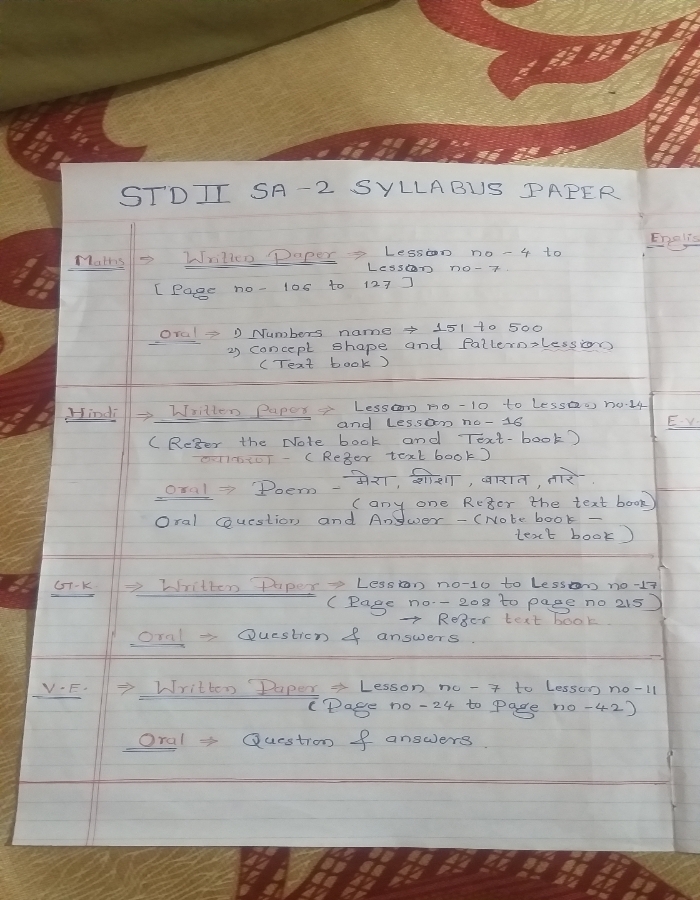 STD II SA - 2 SYLLABUS PAPER
Maths ⇒ Written Paper ⇒ Lesson no - 4 to
Lesson no - 7.
[ Page no - 106 to 127 ]
Oral ⇒ 1) Numbers name → 151 to 500
2) concept shape and Pattern → Lesson
( Text book )
Hindi ⇒ Written Paper ⇒ Lesson no - 10 to Lesson no-14
and Lesson no - 16
( Refer the Note book and Text-book )
व्याकरण - ( Refer text book )
Oral ⇒ Poem - मेरा, शीशा, बारात, तारे.
( any one Refer the text book )
Oral Question and Answer - ( Note book -
text book )
G.K ⇒ Written Paper ⇒ Lesson no-10 to Lesson no -17
( Page no. - 208 to page no 215 )
→ Refer text book.
Oral ⇒ Question & answers.
V.E. ⇒ Written Paper ⇒ Lesson no - 7 to Lesson no - 11
( Page no - 24 to Page no - 42 )
Oral ⇒ Question & answers.
Englis
E.V.